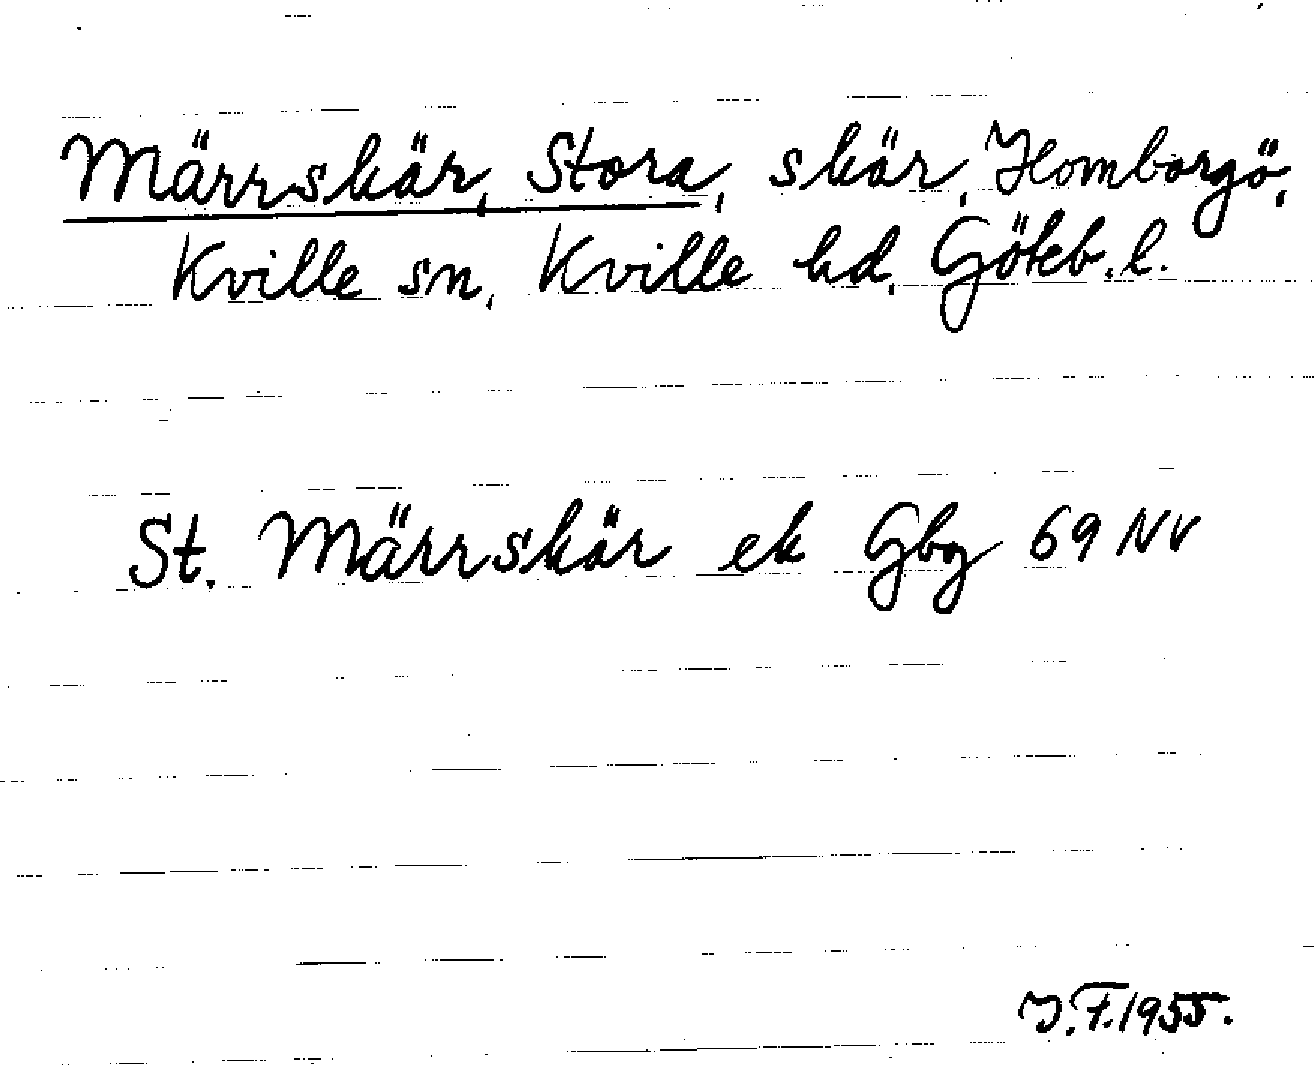 Märrskär, Stora, skär, Homborgö,
Kville sn, Kville hd, Göteb. l.
St. Märrskär ek Gbg 69 NV
J. F. 1955.